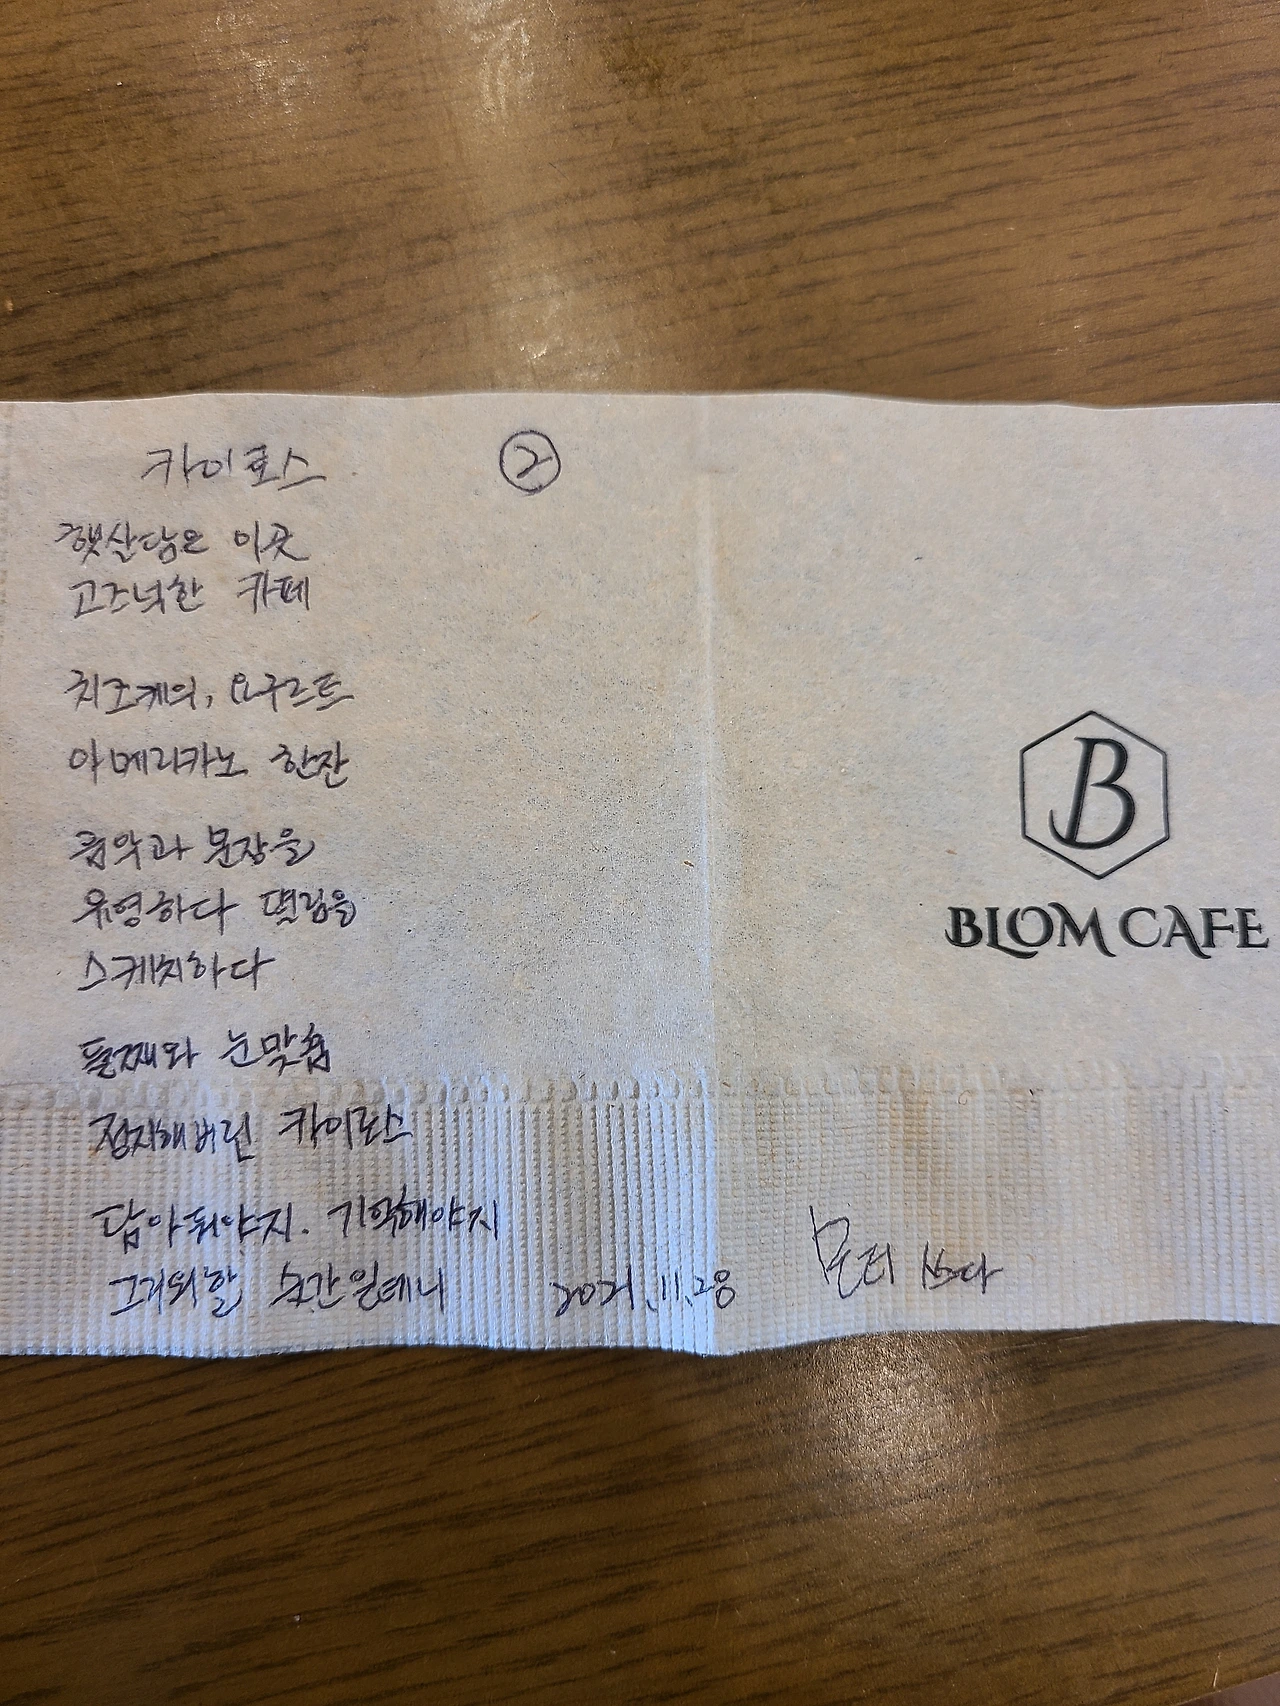 카이로스 ②
햇살담은 이곳
고즈넉한 카페
치즈케익, 요구르트
아메리카노 한잔
음악과 문장을
유영하다 떨림을
스케치하다
둘째와 눈맞춤
정지해버린 카이로스
담아둬야지. 기억해야지
그리워할 순간일테니 2021.11.28
쓰다
B
BLOM CAFE